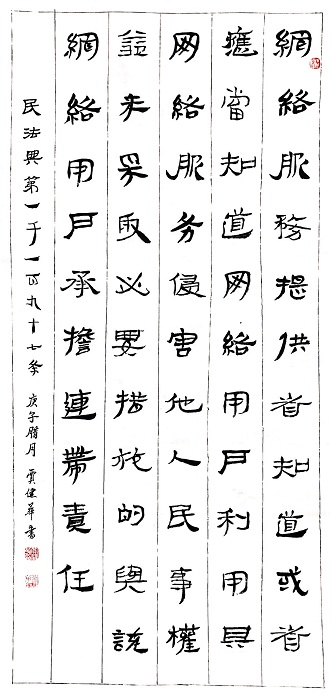 網絡服務提供者知道或者
應當知道网絡用戶利用其
网絡服务侵害他人民事權
益未采取必要措施的與該
網絡用戶承擔連帶責任
民法典第一千一百九十七条 庚子腊月 賈健華書